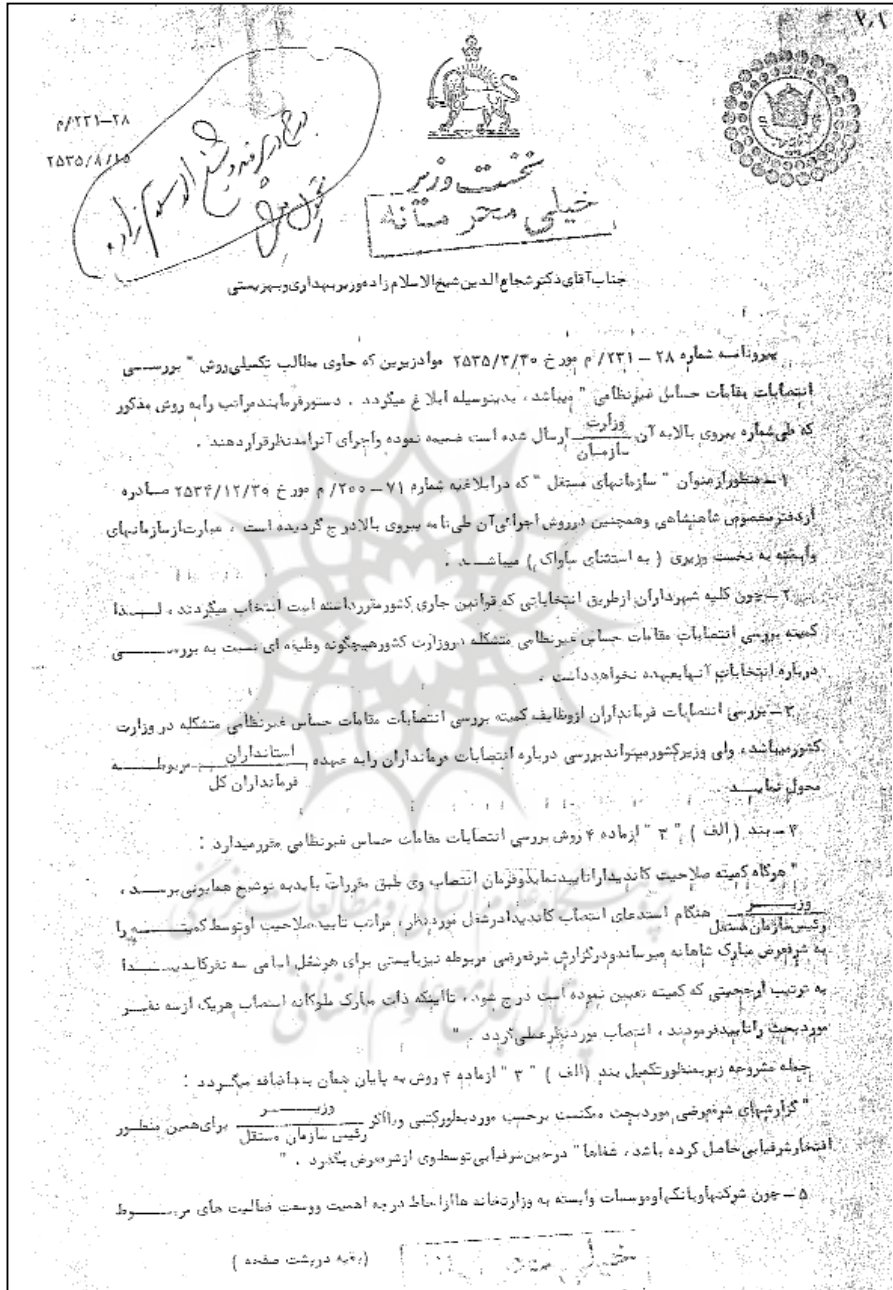 ۲۰۱
۲۸-۲۳۱/م
۲۵۳۵/۸/۱۵
نخست وزیر
خیلی محرمانه
جناب آقای دکتر شجاع الدین شیخ الاسلام زاده وزیر بهداری و بهزیستی
پیرو نامه شماره ۲۸ – ۲۳۱/ م مورخ ۲۵۳۵/۳/۳۰ مواد زیرین که حاوی مطالب تکمیلی روش " بررسی
انتصابات مقامات حساس غیرنظامی " میباشد ، بدینوسیله ابلاغ میگردد . دستور فرمایند مراتب را به روش مذکور
که طی شماره پیروی بالا به آن وزارت
سازمان ارسال شده است ضمیمه نموده واجرای آنرا مدنظر قرار دهند .
۱ – منظور از عنوان " سازمانهای مستقل " که در ابلاغیه شماره ۷۱ – ۲۰۰/ م مورخ ۲۵۳۴/۱۲/۳۰ صادره
از دفتر مخصوص شاهنشاهی وهمچنین در روش اجرائی آن طی نامه پیروی بالا درج گردیده است ، عبارت از سازمانهای
وابسته به نخست وزیری ( به استثنای ساواک ) میباشد .
۲ – چون کلیه شهرداران از طریق انتخاباتی که قوانین جاری کشور مقرر داشته است انتخاب میگردند ، لذا
کمیته بررسی انتصابات مقامات حساس غیرنظامی متشکله در وزارت کشور هیچگونه وظیفه ای نسبت به بررسی
درباره انتخابات آنها بعهده نخواهد داشت .
۳ – بررسی انتصابات فرمانداران از وظایف کمیته بررسی انتصابات مقامات حساس غیرنظامی متشکله در وزارت
کشور میباشد ، ولی وزیر کشور میتواند بررسی درباره انتصابات فرمانداران را به عهده استانداران
فرمانداران کل مربوطه
محول نماید
۴ – بند ( الف ) " ۳ " از ماده ۴ روش بررسی انتصابات مقامات حساس غیرنظامی مقرر میدارد :
" هرگاه کمیته صلاحیت کاندیدا را تایید نماید و فرمان انتصاب وی طبق مقررات باید به توشیح همایونی برسد ،
وزیر
رئیس سازمان مستقل هنگام استدعای انتصاب کاندیدا در شغل مورد نظر ، مراتب تایید صلاحیت او توسط کمیته را
به شرفعرض مبارک شاهانه میرساند و در گزارش شرفعرضی مربوطه نیز بایستی برای هر شغل اسامی سه نفر کاندیدا
به ترتیب ارجحیتی که کمیته تعیین نموده است درج شود ، تا اینکه ذات مبارک ملوکانه انتصاب هریک از سه نفر
مورد بحث را تایید فرمودند ، انتصاب مورد نظر عملی گردد . "
جمله مشروحه زیر بمنظور تکمیل بند (الف ) " ۳ " از ماده ۴ روش به پایان همان بند اضافه میگردد :
" گزارشهای شرفعرضی مورد بحث ممکنست برحسب مورد بطور کتبی و یا اگر وزیر
رئیس سازمان مستقل برای همین منظور
افتخار شرفیابی حاصل کرده باشد ، شفاها " در حین شرفیابی توسط وی از شرفعرض بگذرد . "
۵ – چون شرکتها و بانکها و موسسات وابسته به وزارتخانه ها از لحاظ درجه اهمیت و وسعت فعالیت های مربوط
(بقیه در پشت صفحه )
پژوهشگاه علوم انسانی و مطالعات فرهنگی
پرتال جامع علوم انسانی